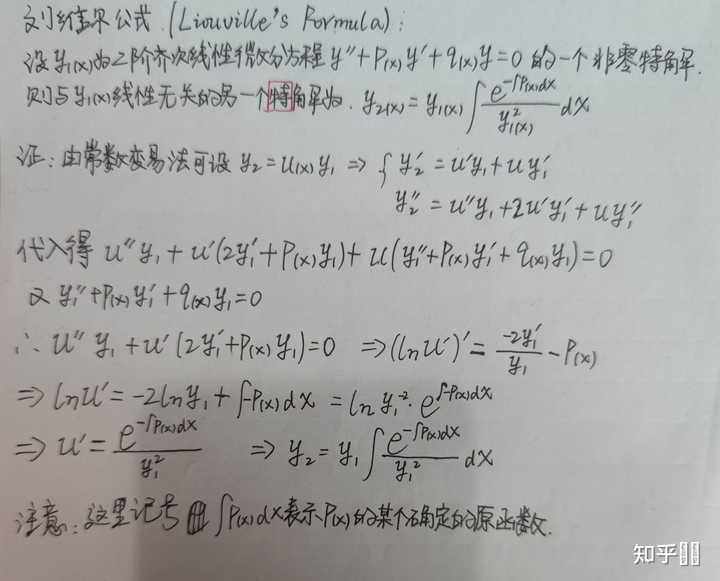 刘维尔公式 (Liouville's Formula):
设 y₁(x)为二阶齐次线性微分方程 y''+P(x)y'+q(x)y=0 的一个非零特解.
则与y₁(x)线性无关的另一个特解为. y₂(x)=y₁(x)∫ e^{-∫P(x)dx}/y₁²(x) dx
证: 由常数变易法可设 y₂=u(x)y₁ ⇒ { y₂'=u'y₁+uy₁'
y₂''=u''y₁+2u'y₁'+uy₁''
代入得 u''y₁+u'(2y₁'+P(x)y₁)+u(y₁''+P(x)y₁'+q(x)y₁)=0
又 y₁''+P(x)y₁'+q(x)y₁=0
∴ u''y₁+u'(2y₁'+P(x)y₁)=0 ⇒(lnu')'= -2y₁'/y₁ -P(x)
⇒ lnu'=-2lny₁+∫-P(x)dx =ln y₁⁻²·e^{∫-P(x)dx}
⇒ u'= e^{-∫P(x)dx}/y₁² ⇒ y₂=y₁∫ e^{-∫P(x)dx}/y₁² dx
注意: 这里记号 ∫P(x)dx表示P(x)的某个确定的原函数.
知乎